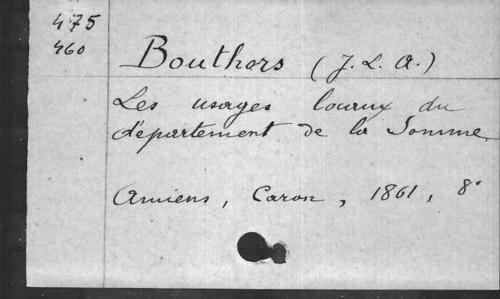 475
460
Bouthors (J. L. A.)
Les usages locaux du
département de la Somme.
Amiens, Caron, 1861, 8°